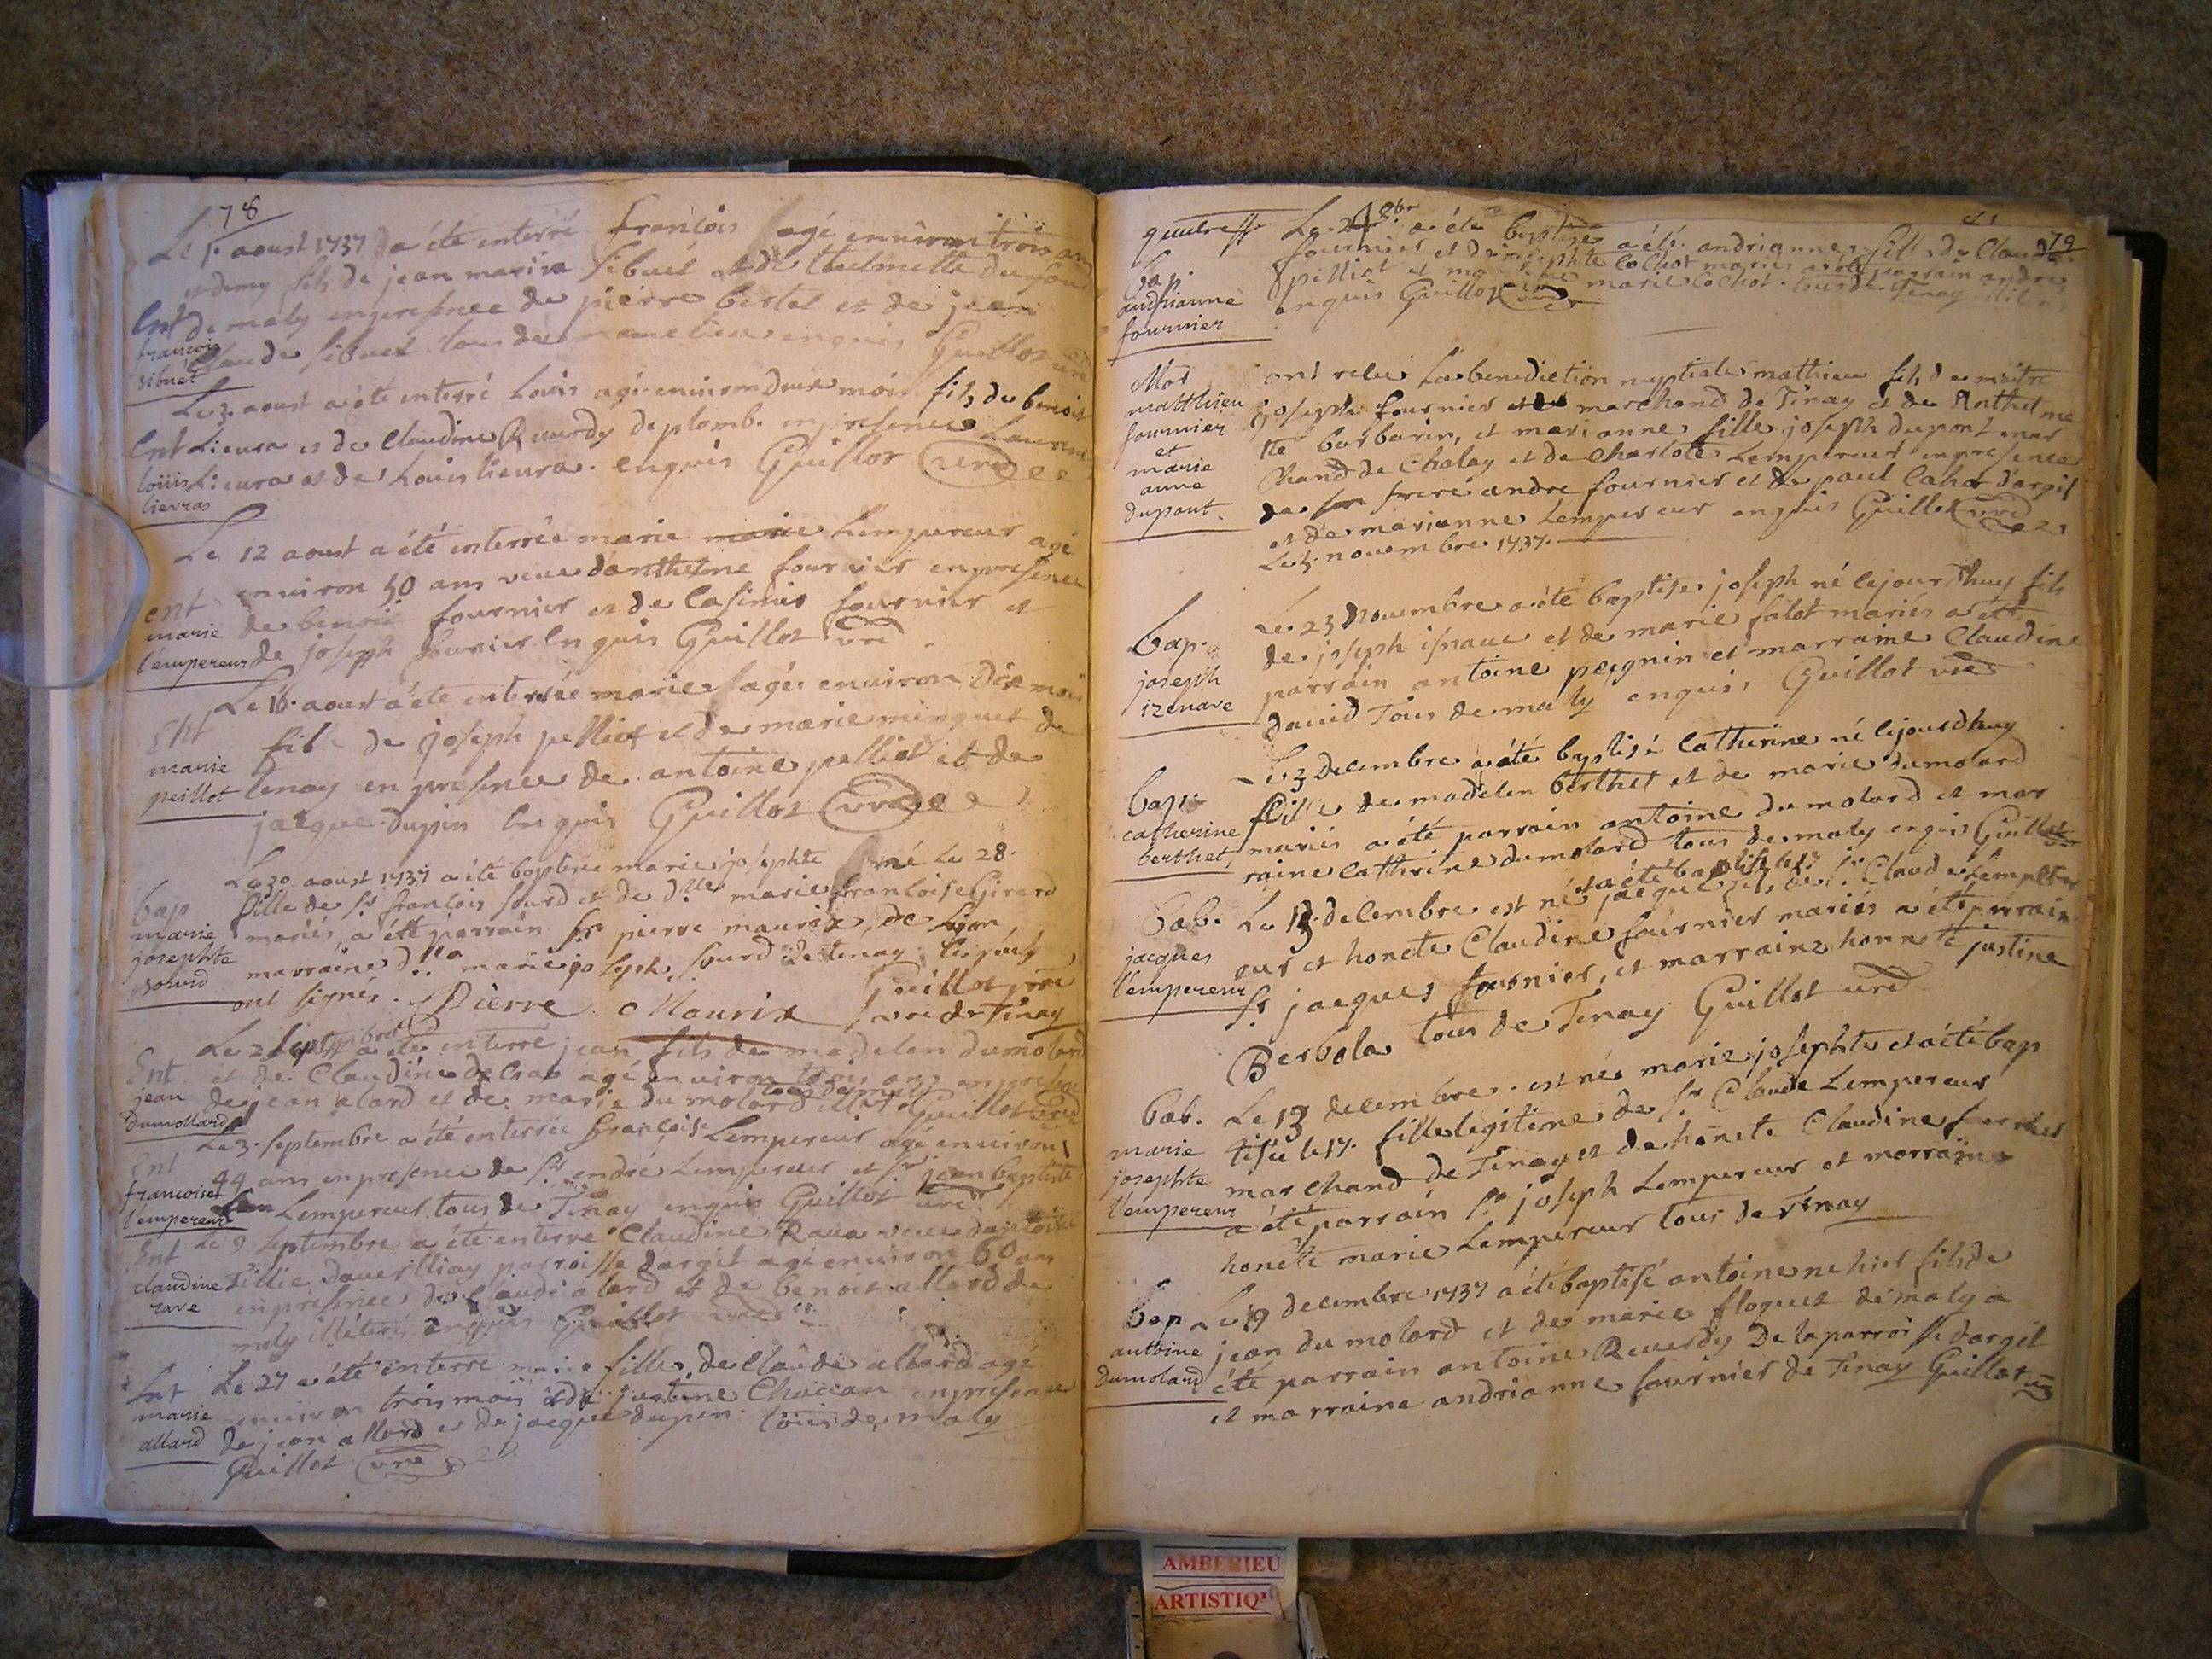 78
Le 1. aoust 1737 a été interré francois agé environ trois an
et demy fils de jean marin Sibuet et de thelmette dufour
Ent de maly en presence de pierre bertet et de jean
francois Claude Sibuet tous de meme lieu enquis Guillot
sibuet
Le 3. aoust a été interré Louis agé environ deux mois fils de benoit
Ent Lieura et de Claudine Reverdy de plomb. en presence Laurent
loüis Lieura et de Louis lieura. enquis Guillot vre
lievras
Le 12 aoust a été interrée marie Lempereur agé
environ 50 ans veuve d'anthelme fournier en presence
ent de benoit fournier et de Casimir fournier et
marie de joseph fournier enquis Guillot vre
l'empereur
Le 16. aoust a été interrée marie agée environ dix mois
Ent fille de joseph pelliot et de marie minguet de
marie tenay en presence de antoine pelliot et de
peillot jacque dupin enquis Guillot vre
Le 30 aoust 1737 a été baptisée marie josephte né Le 28.
bap fille de Sr francois sourd et de dlle marie francoise Girard
marie mariés, a été parrain Sr pierre maurix, de lion
josephte marraine dlle marie joseph sourd de tenay
sourd ont signés. Pierre Maurix Guillot pre
vre de Tenay
Le 2 septembre a été interré jean fils de madelen dumolard
Ent et de Claudine agé environ trois ans en presence
jean de jean alard et de marie du molard Guillot vre
Dumollard
Le 3. septembre a été enterrée francoise Lempereur agé environ
Ent 44 ans en presence de Sr andré Lempereur et Sr jean baptiste
francoise Lempereur tous de Tenay enquis Guillot vre
l'empereur
Ent Le 9 septembre a été enterré Claudine Rava veuve
claudine Tillie daverlliay parroisse dargit agé environ 60 ans
rave en presence de Claude alard et de benoit allard de
maly enquis Guillot vre
Ent Le 27 a été enterré marie fille de Claude allard agé
marie environ trois mois et de justine en presence
allard de jean allard et de jacque dupin tous de maly
Guillot vre
79
Le 24 8bre a été baptisée andrianne fille de Claude
Bap. fournier et de josephte Cochot mariés a été parrain andre
andrianne pelliot et marraine marie Cochot tous de Tenay
fournier enquis Guillot vre
Mar ont receu La benediction nuptiale mathieu fils de maitre
matthieu joseph fournier marchand de Tenay et de Anthelme
fournier tte barbarin, et marianne fille joseph dupont mar
et chand de Chalay et de Charlote Lempereur en presence
marie de son frere andre fournier et de paul Cahot d'argit
anne et de marianne Lempereur enquis Guillot vre
dupont Le 5. novembre 1737.
Le 23 Novembre a été baptisé joseph né cejourdhuy fils
bap. de joseph isnave et de marie falot mariés a été
joseph parrain antoine peignin et marraine Claudine
izenave david Tous de maly enquis Guillot vre
Le 3 decembre a été baptisé Catherine né cejourdhuy
bap. fille de madelen berthet et de marie dumolard
catherine mariés a été parrain antoine du molard et mar
berthet raine Cathrine dumolard tous de maly enquis Guillot
a été baptisé le 17
bab. Le 13 decembre est né jacque fils de Sr Claude Lempere
jacques eur et honete Claudine fournier mariés a été parrain
l'empereur Sr jacques fournier, et marraine honneté justine
Berbola tous de Tenay Guillot vre
bab. Le 13 decembre est née marie josephte et a été bap
marie tisée le 17. fille legitime de Sr Claude Lempereur
josephte marchand de Tenay et de honete Claudine
l'empereur a été parrain Sr joseph Lempereur et marraine
honete marie Lempereur tous de Tenay
bap Le 19 decembre 1737 a été baptisé antoine né hier fils de
antoine jean du molard et de marie floquet de maly a
Dumolard été parrain antoine Reverdy De la parroisse dargit
et marraine andrianne fournier de Tenay Guillot vre
AMBERIEU
ARTISTIQ